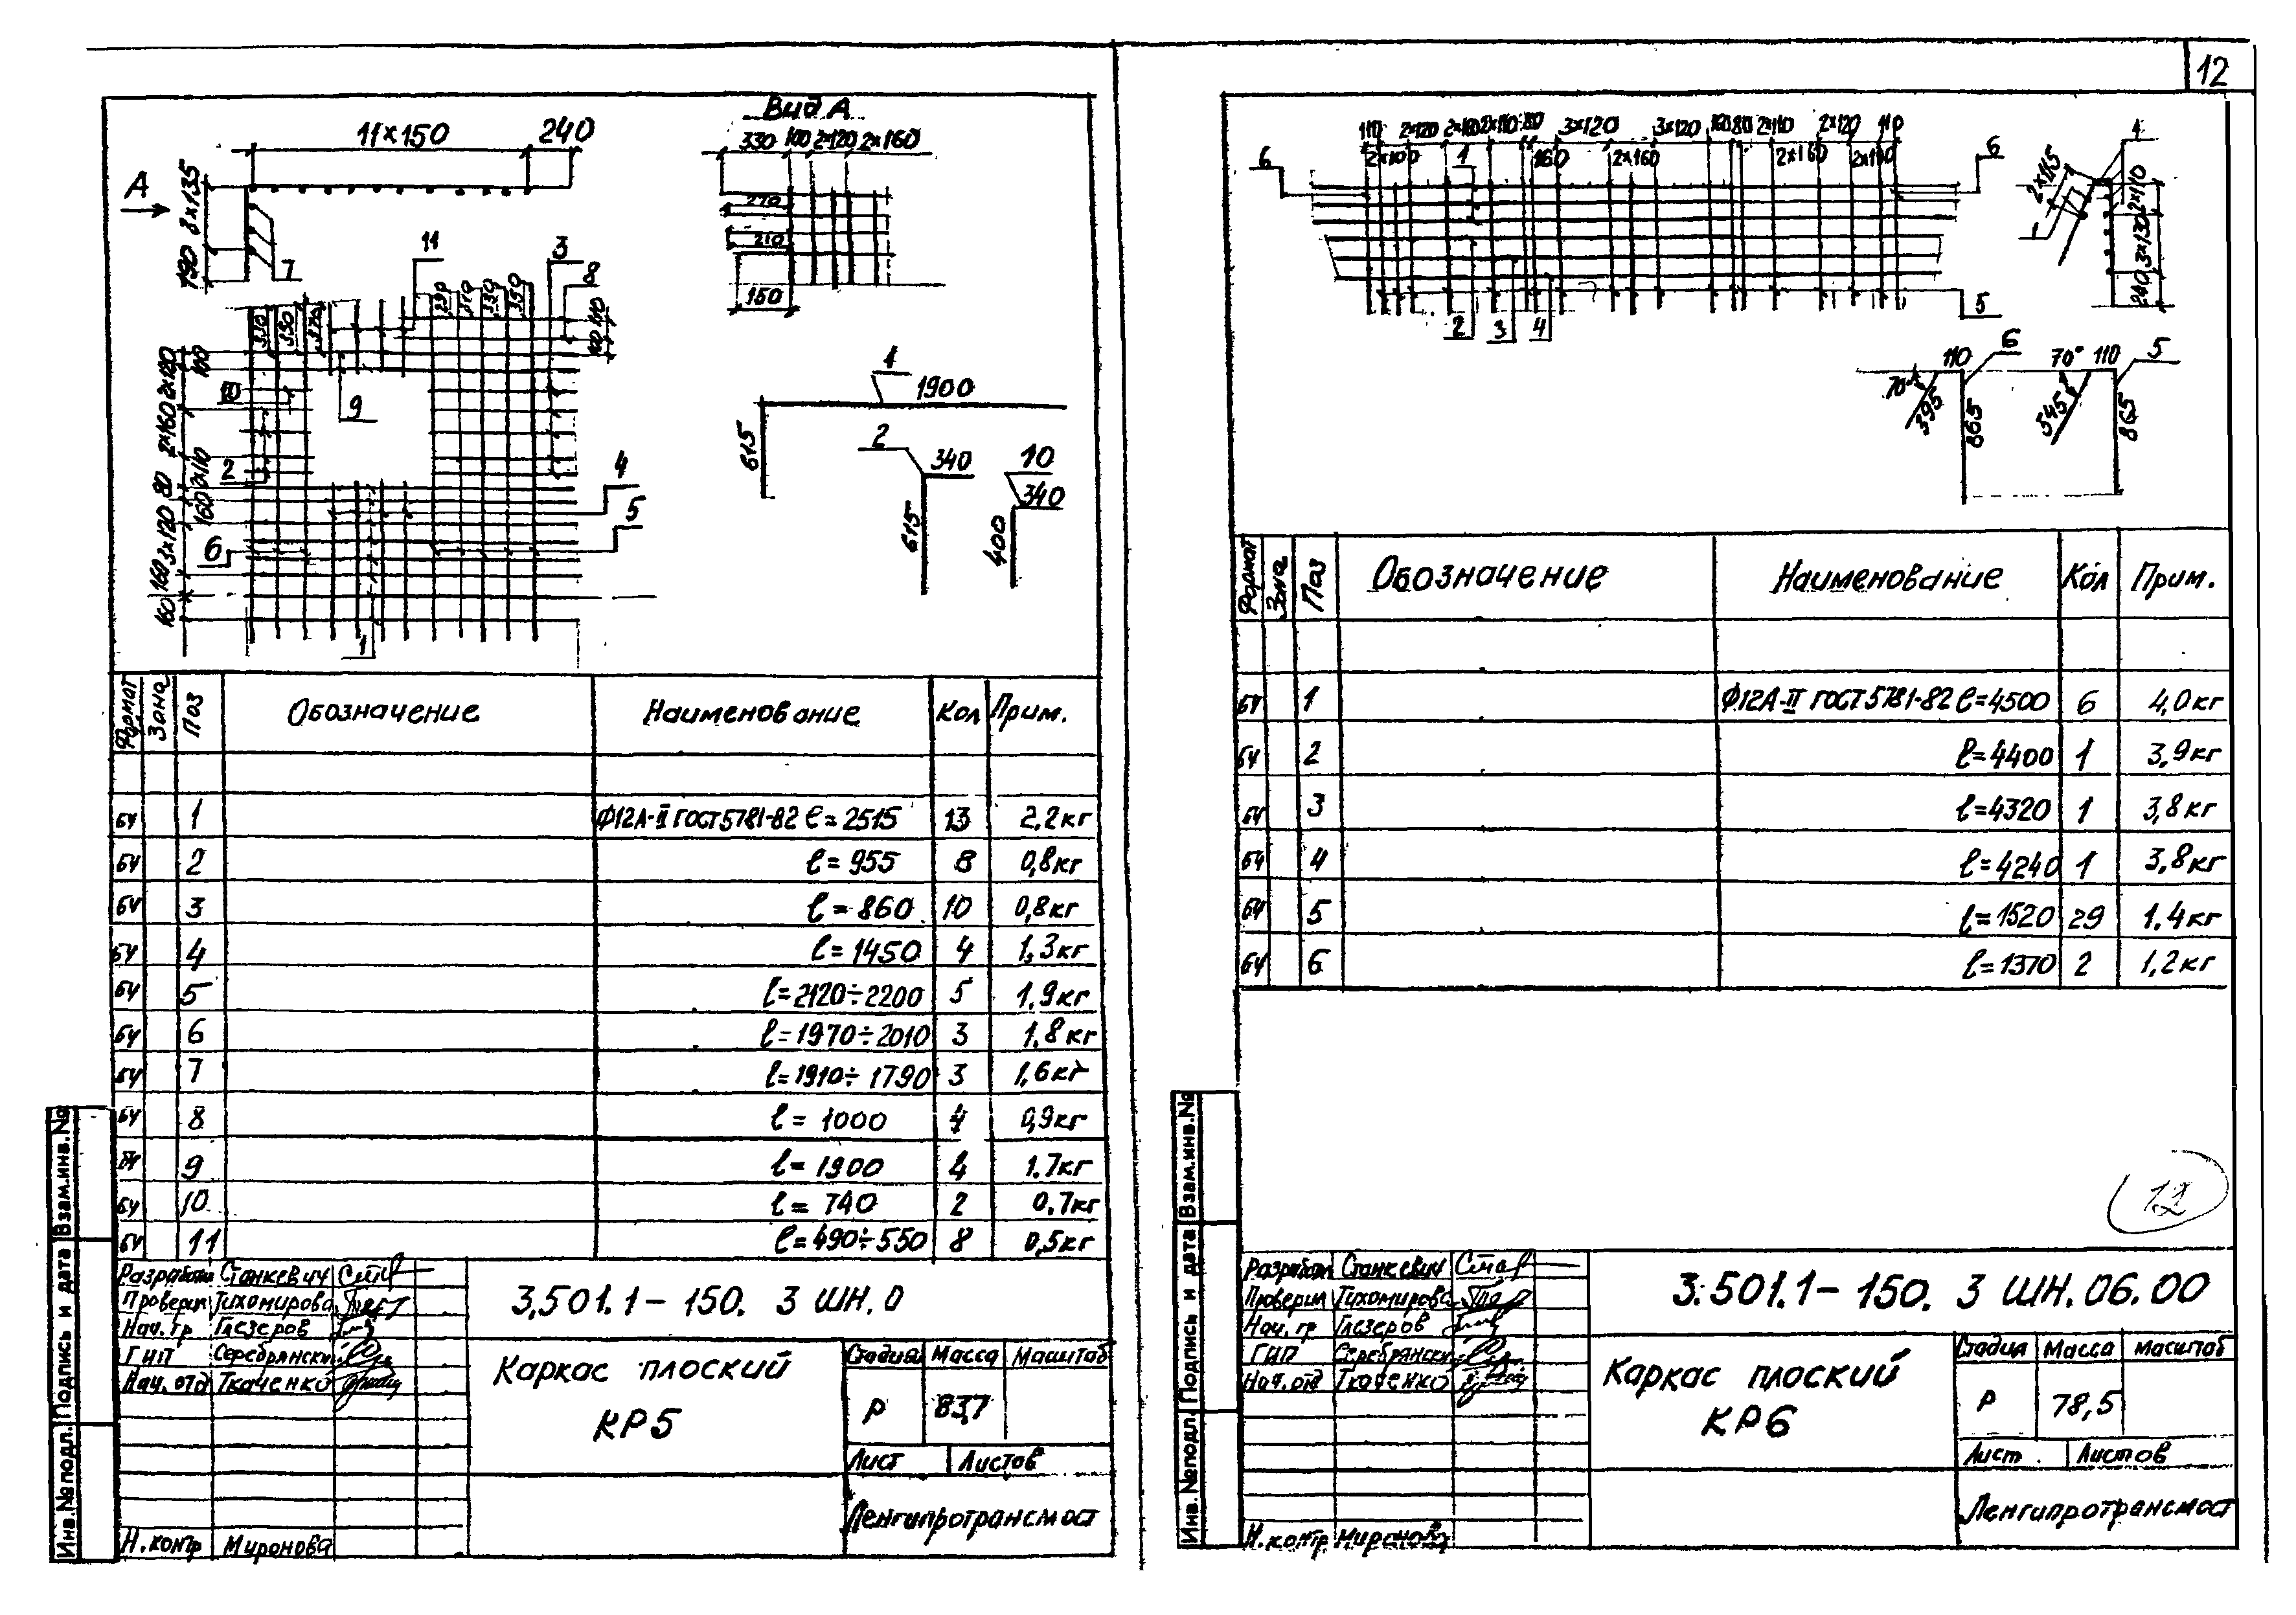 12
11×150 240
A
8×135
190
7
11
3
8
330 350 370
230 310 330 350
100
2×120
10
9
2×160
2
2×110
80
160
4
5
3×120
6
160
160
1
Вид А
330 100 2×120 2×160
270
210
150
1
1900
615
2
340
615
10
340
400
Формат Зона Поз Обозначение Наименование Кол Прим.
БЧ 1 Ф12А-II ГОСТ5781-82 ℓ=2515 13 2.2кг
БЧ 2 ℓ=955 8 0,8кг
БЧ 3 ℓ=860 10 0,8кг
БЧ 4 ℓ=1450 4 1,3кг
БЧ 5 ℓ=2120÷2200 5 1,9кг
БЧ 6 ℓ=1970÷2010 3 1.8кг
БЧ 7 ℓ=1910÷1790 3 1,6кг
БЧ 8 ℓ=1000 4 0,9кг
БЧ 9 ℓ=1900 4 1.7кг
БЧ 10 ℓ=740 2 0.7кг
БЧ 11 ℓ=490÷550 8 0,5кг
Разработал Станкевич
Проверил Тихомирова
Нач. гр Глезеров
ГИП Серебрянский
Нач. отд Ткаченко
Н. контр Миронова
3,501.1-150. 3 ШН.0
Каркас плоский
КР5
Стадия Масса Масштаб
Р 83,7
Лист Листов
Ленгипротрансмост
Инв.№подл. Подпись и дата Взам.инв.№
110 2×120 2×160 2×110 80 3×120 3×120 160 80 2×110 2×120 110
6 2×100 1 160 2×160 2×160 2×110 6
2 3 4 5
1
2×115
2×110
3×130
240
1
110 6
70°
395
865
70° 110 5
545
865
Формат Зона Поз Обозначение Наименование Кол Прим.
БЧ 1 Ф12А-II ГОСТ5781-82 ℓ=4500 6 4,0кг
БЧ 2 ℓ=4400 1 3,9кг
БЧ 3 ℓ=4320 1 3,8кг
БЧ 4 ℓ=4240 1 3,8кг
БЧ 5 ℓ=1520 29 1.4кг
БЧ 6 ℓ=1370 2 1,2кг
12
Разработал Станкевич
Проверил Тихомирова
Нач. гр Глезеров
ГИП Серебрянский
Нач. отд Ткаченко
Н. контр Миронова
3.501.1-150. 3 ШН.06.00
Каркас плоский
КР6
Стадия Масса Масштаб
Р 78,5
Лист Листов
Ленгипротрансмост
Инв.№подл. Подпись и дата Взам.инв.№